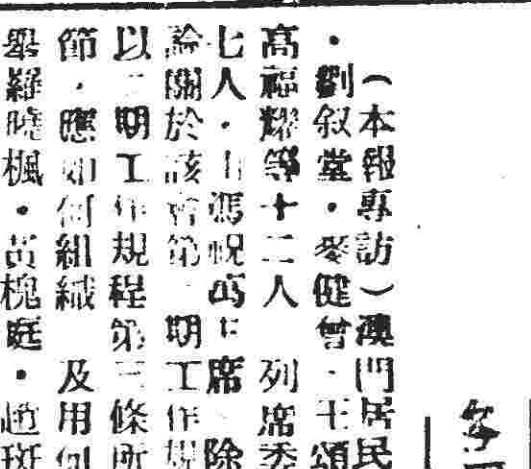 （本報專訪）澳門居民
・劉叙堂・麥健曾・王頌
高福耀等十二人 列席委
七人・由馮祝萬主席 除
論關於該會第 期工作規
以二期工作規程第三條所
節・應如何組織 及用何
舉羅曉楓・黃槐庭・趙斑